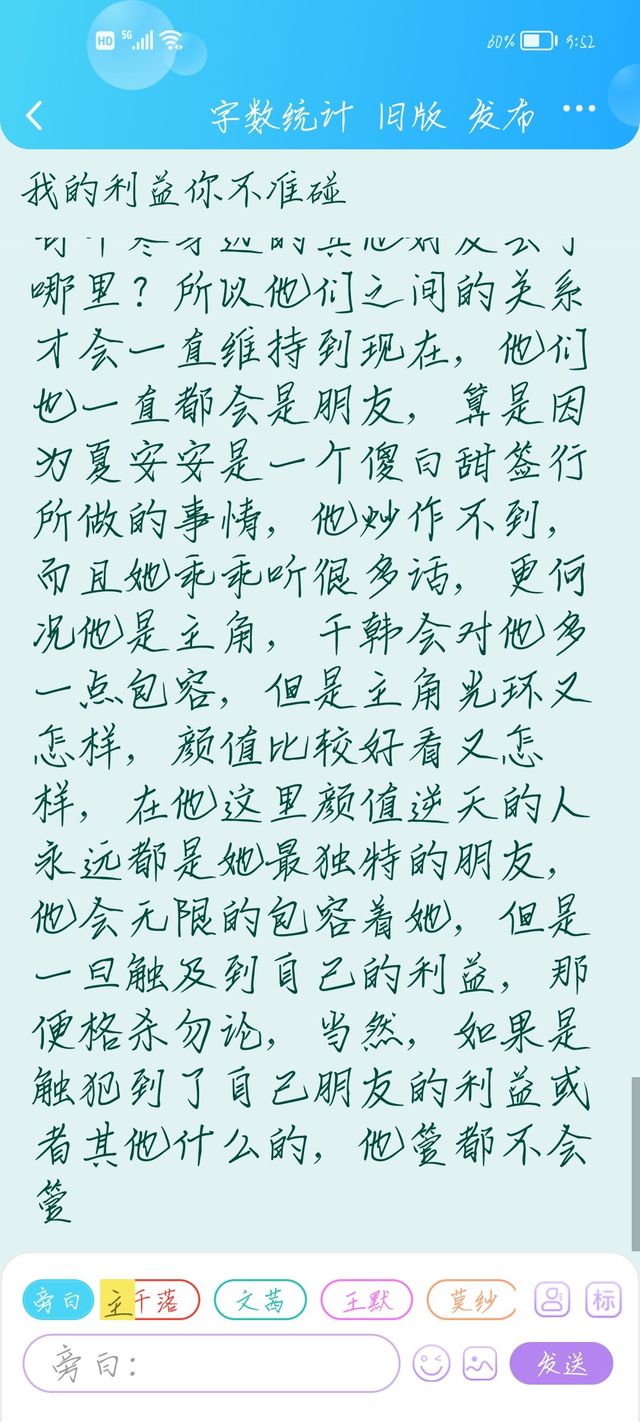 HD 5G 60% 9:52
字数统计 旧版 发布 ...
我的利益你不准碰
哪里？所以他们之间的关系
才会一直维持到现在，他们
也一直都会是朋友，算是因
为夏安安是一个傻白甜签行
所做的事情，他炒作不到，
而且她乖乖听很多话，更何
况他是主角，千韩会对他多
一点包容，但是主角光环又
怎样，颜值比较好看又怎
样，在他这里颜值逆天的人
永远都是她最独特的朋友，
他会无限的包容着她，但是
一旦触及到自己的利益，那
便格杀勿论，当然，如果是
触犯到了自己朋友的利益或
者其他什么的，他管都不会
管
旁白 主 千落 文茜 王默 莫纱 标
旁白： 发送